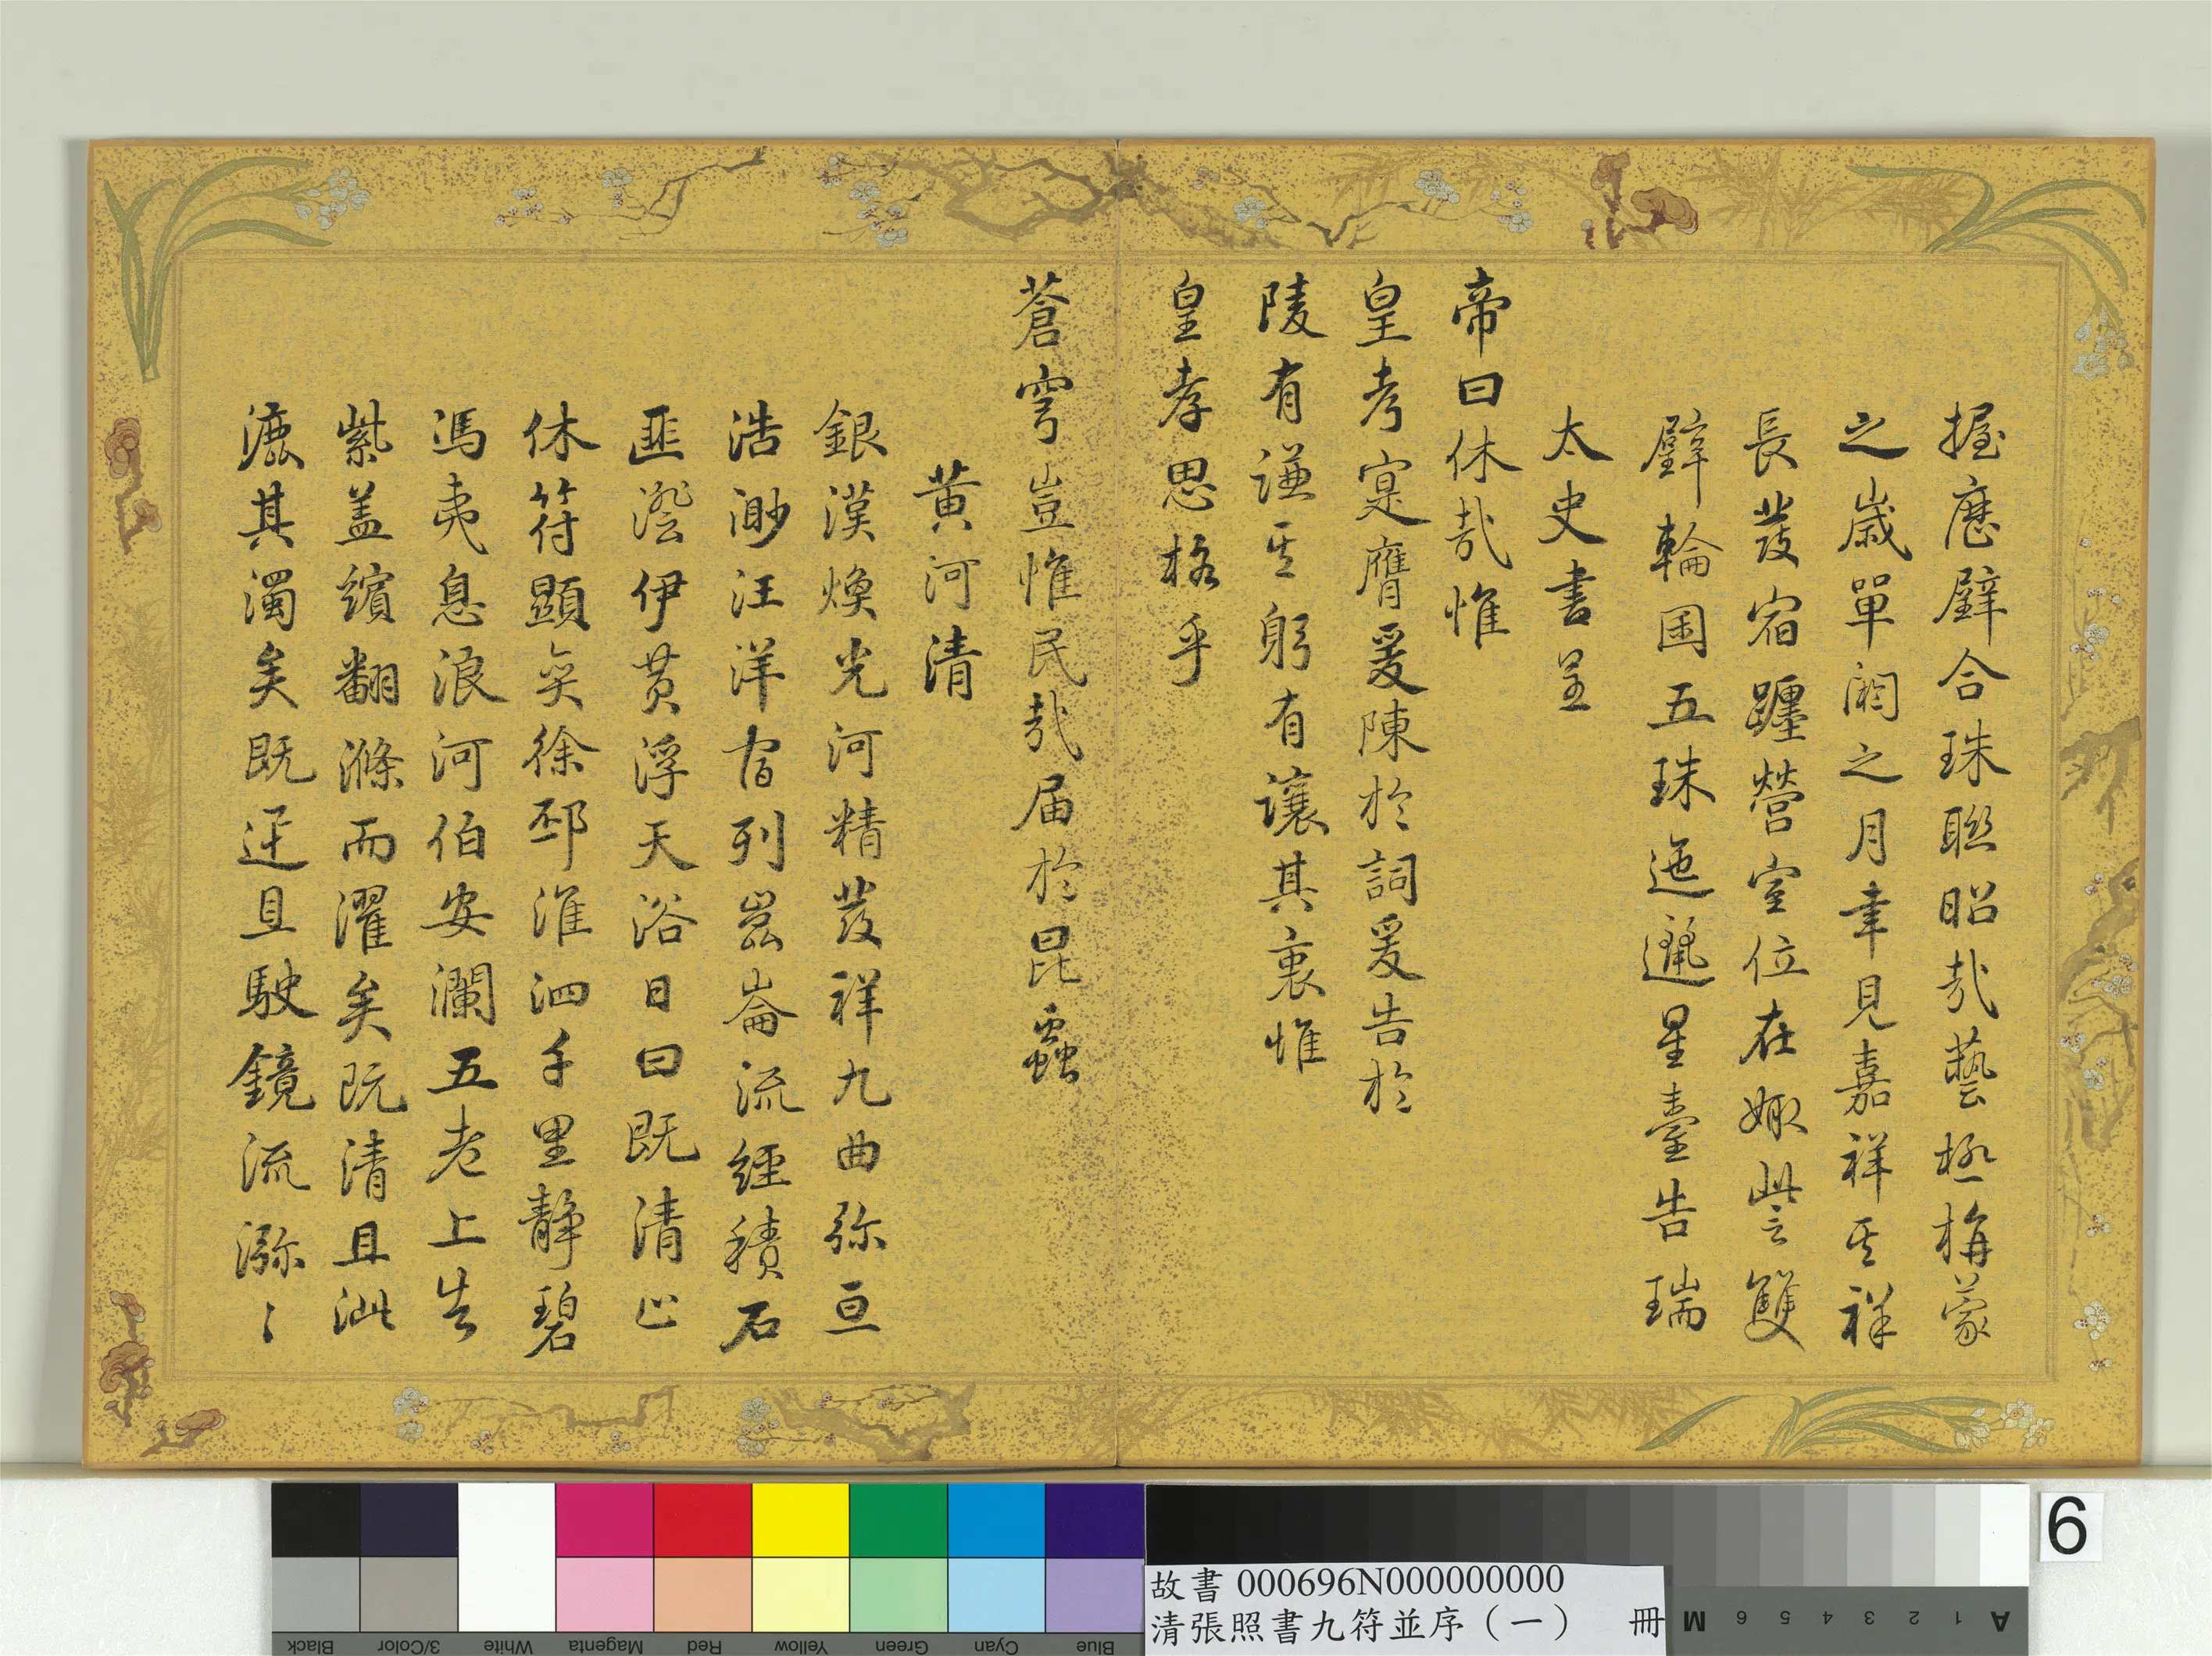 握歷璧合珠聯昭哉藝極栴蒙
之歲單閼之月聿見嘉祥其祥
長發宿躔營室位在娵訾雙
璧輪囷五珠迤邐星臺告瑞
太史書呈
帝曰休哉惟
皇考寔膺爰陳於詞爰告於
陵有謙其躬有讓其衷惟
皇孝思格乎
蒼穹豈惟民哉届於昆蟲
黃河清
銀漢煥光河精發祥九曲弥亘
浩渺汪洋宿列崑崙流經積石
匪瀠伊黃浮天浴日曰既清止
休符顯奕徐邳淮泗千里静碧
馮夷息浪河伯安瀾五老上告
紫盖繽翻滌而濯矣既清且泚
漉其濁矣既迋且駛鏡流瀰〻
故書 000696N000000000
清張照書九符並序（一） 冊
6
Black
3/Color
White
Magenta
Red
Yellow
Green
Cyan
Blue
M 6 5 4 3 2 1 A